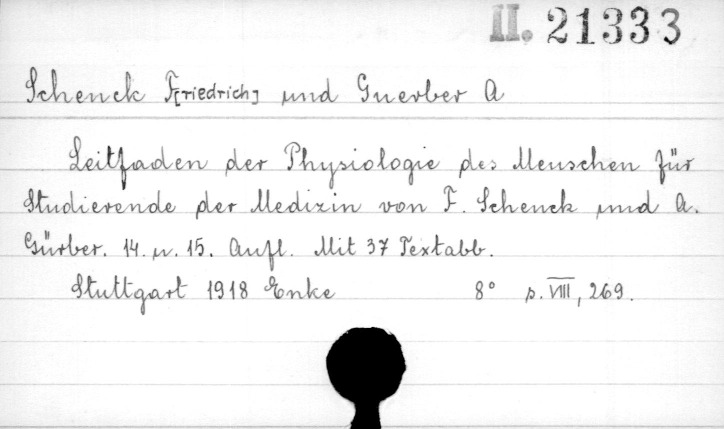 II. 21333
Schenck F[riedrich] und Guerber A
Leitfaden der Physiologie des Menschen für
Studierende der Medizin von F. Schenck und A.
Gürber. 14. u. 15. Aufl. Mit 37 Textabb.
Stuttgart 1918 Enke 8° s. VIII, 269.